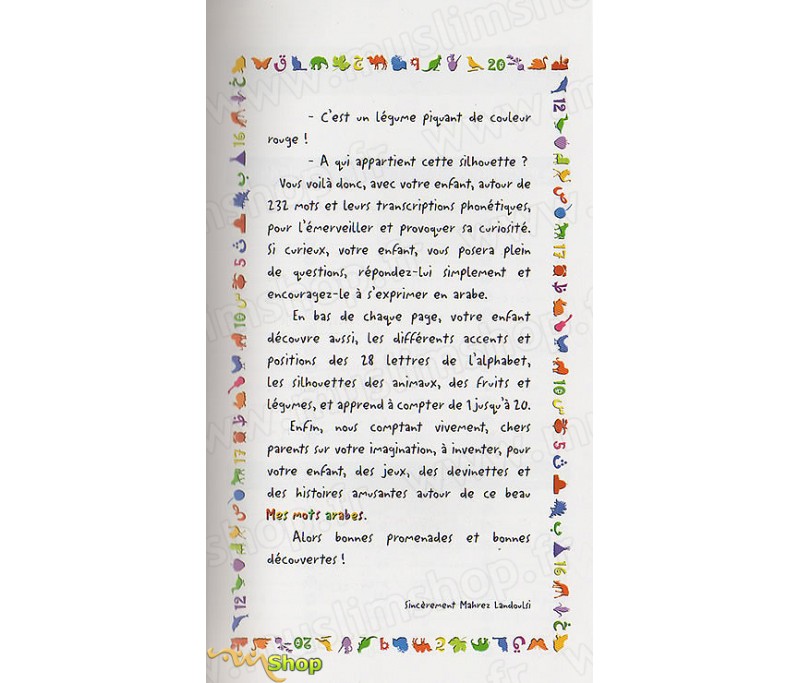 - C'est un légume piquant de couleur
rouge !
- A qui appartient cette silhouette ?
Vous voilà donc, avec votre enfant, autour de
232 mots et leurs transcriptions phonétiques,
pour l'émerveiller et provoquer sa curiosité.
Si curieux, votre enfant, vous posera plein
de questions, répondez-lui simplement et
encouragez-le à s'exprimer en arabe.
En bas de chaque page, votre enfant
découvre aussi, les différents accents et
positions des 28 lettres de l'alphabet,
les silhouettes des animaux, des fruits et
légumes, et apprend à compter de 1 jusqu'à 20.
Enfin, nous comptant vivement, chers
parents sur votre imagination, à inventer, pour
votre enfant, des jeux, des devinettes et
des histoires amusantes autour de ce beau
Mes mots arabes.
Alors bonnes promenades et bonnes
découvertes !
Sincèrement Mahrez Landoulsi
Shop
www.muslimshop.fr